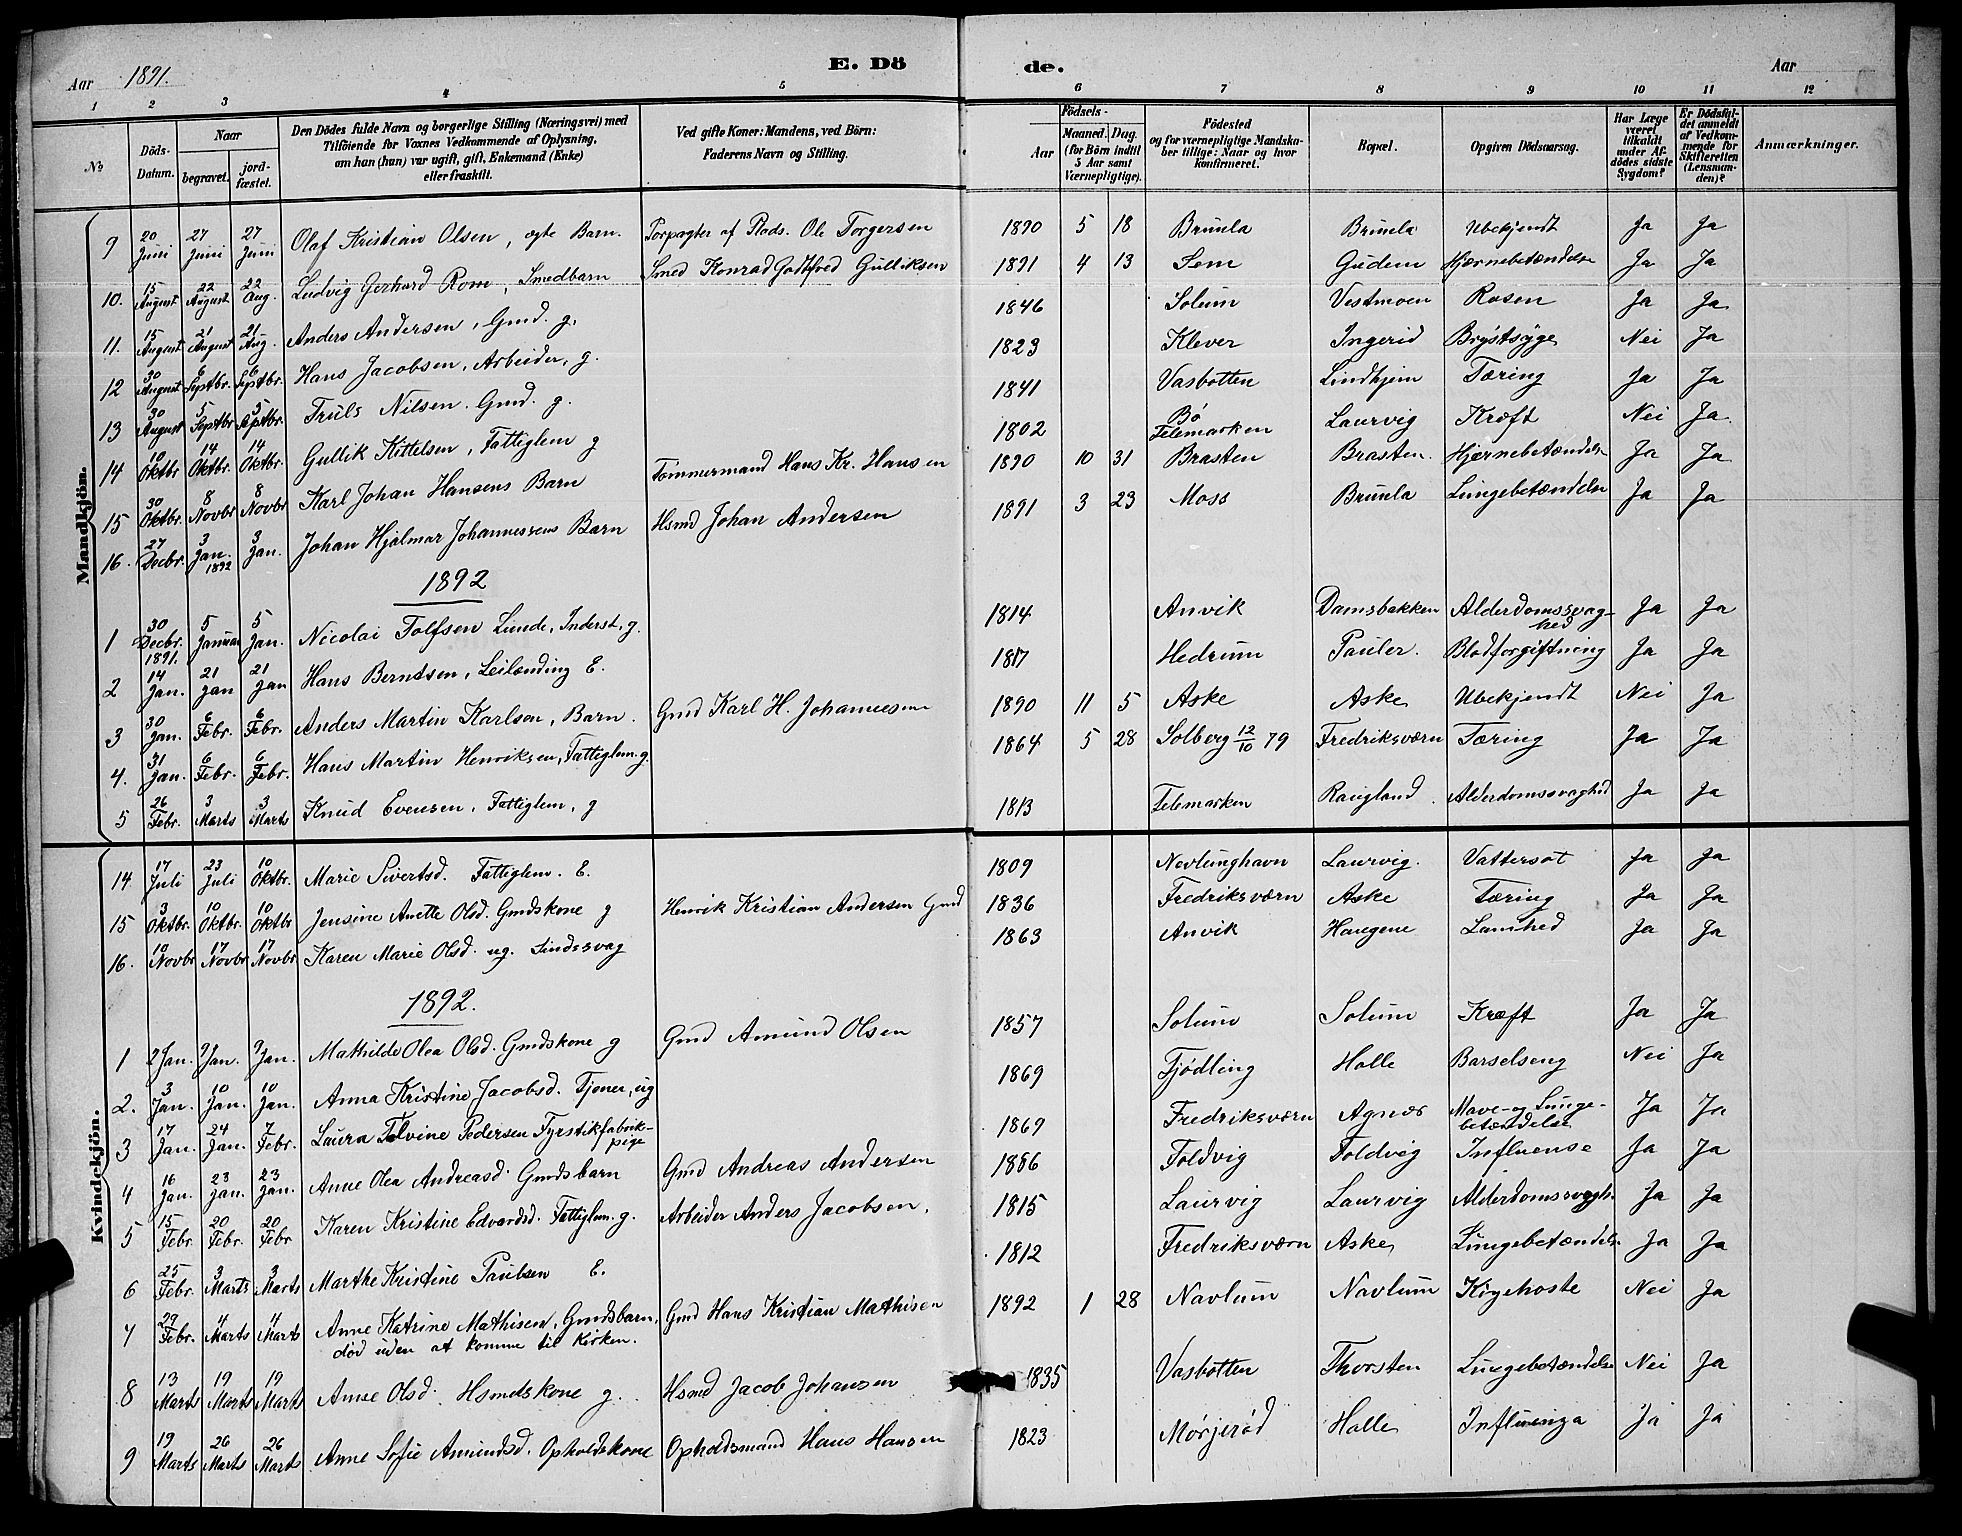 Aar 1891. E. Dö de. Aar
1 2 3 4 5 6 7 8 9 10 11 12
No
Döds-Datum.
Naar
begravet.
jord-fæstet.
Den Dödes fulde Navn og borgerlige Stilling (Næringsvei) med
Tilföiende for Voxnes Vedkommende af Oplysning,
om han (hun) var ugift, gift, Enkemand (Enke)
eller fraskilt.
Ved gifte Koner: Mandens, ved Börn:
Faderens Navn og Stilling.
Födsels-
Aar
Maaned. Dag.
(for Börn indtil
5 Aar samt
Værnepligtige).
Födested
og for værnepligtige Mandska-
ber tillige: Naar og hvor
konfirmeret.
Bopæl.
Opgiven Dödsaarsag.
Har Læge
været
tilkaldt
under Af-
dödes sidste
Sygdom?
Er Dödsfal-
det anmeldt
af Vedkom-
mende for
Skifteretten
(Lensman-
den)?
Anmærkninger.
Mandkjön.
9 20 Juni 27 Juni 27 Juni Olaf Kristian Olsen, ægte Barn. Forpagter af Plads. Ole Torgersen 1890 5 18 Brunla Brunla Ubekjendt Ja Ja
10. 15 August 22 August 22 Aug. Ludvig Gerhard Rom, Smedbarn Smed Konrad Godtfred Gulliksen 1891 4 13 Sem Gudem Hjærnebetændelse Ja Ja
11. 15 August 21 August 21 Aug. Anders Andersen, Gmd. g. 1846 Solum Vestmoen Rosen Ja Ja
12 30 August 6 Septbr. 6 Septbr. Hans Jacobsen, Arbeider, g. 1823 Klever Ingerid Brystsyge Nei Ja
13 30 August 5 Septbr 5 Septbr. Truls Nilsen. Gmd. g. 1841 Vasbotten Lindhjem Tæring Ja Ja
14 10 Oktbr 14 Oktbr. 14 Oktbr. Gullik Kittelsen, Fattiglem g 1802 Bö Telemarken Laurvig Kræft Nei Ja
15 30 Oktbr. 8 Novbr 8 Novbr Karl Johan Hansens Barn Tömmermand Hans Kr. Hansen 1890 10 31 Brasten Brasten. Hjærnebetændelse Ja Ja
16. 27 Decbr. 3 Jan. 1892 3 Jan. Johan Hjalmar Johannessens Barn Hsmd Johan Andersen 1891 3 23 Moss Brunla Lungebetændelse Ja Ja
1892
1 30 Decbr. 1891. 5 Januar 5 Jan. Nicolai Tolfsen Lunde, Inderst, g. 1814 Anvik Damsbakken Alderdomssvag-hed Ja Ja
2 14 Jan. 21 Jan 21 Jan Hans Berndsen, Leilænding E. 1817 Hedrum Pauler. Blodforgiftning Ja Ja
3 30 Jan. 6 Febr. 6 Febr. Anders Martin Karlson, Barn. Gmd Karl H. Johannesen 1890 11 5 Aske Aske Ubekjendt Nei Ja
4. 31 Jan. 6 Febr. 6 Febr. Hans Martin Henriksen, Fattiglem. g. 1864 5 28 Solberg 12/10 79 Fredriksværn Tæring Ja Ja
5 26 Febr. 3 Marts 3 Marts Knud Evensen, Fattiglem, g 1813 Telemarken Raugland. Alderdomssvaghed Ja Ja
Kvindekjön.
14 17 Juli 23 Juli 10 Oktbr. Marie Sivertsd. Fattiglem. E. 1809 Nevlunghavn Laurvig. Vattersot Ja Ja
15 3 Oktbr. 10 Oktbr. 10 Oktbr Jensine Anette Olsd. Gmdskone g Henrik Kristian Andersen Gmd 1836 Fredriksværn Aske Tæring Ja Ja
16. 10 Novbr 17 Novbr 17 Novbr Karen Marie Olsd. ug. Sindssvag 1863 Anvik Haugene Lamhed Ja Ja
1892.
1 2 Jan. 9 Jan. 9 Jan. Mathilde Olea Olsd. Gmdskone g Gmd Amund Olsen 1857 Solum Solum Kræft Ja Ja
2. 3 Jan. 10 Jan. 10 Jan. Anna Kristine Jacobsd. Tjener, ug 1869 Tjödling Halle Barselseng Nei Ja
3 17 Jan. 24 Jan. 7 Febr. Laura Tolvine Pedersen Fyrstikfabrik-pige 1869 Fredriksværn Agnæs Mave- og Lunge-betændelse Ja Ja
4 16 Jan. 23 Jan. 23 Jan. Anne Olea Andreasd. Gmdsbarn Gmd Andreas Andersen 1886 Foldvig Foldvig Influense Ja Ja
5 15 Febr. 20 Febr. 20 Febr Karen Kristine Edvardsd. Fattiglem. g. Arbeider Anders Jacobsen. 1815 Laurvig Laurvig Alderdomssvagh. Ja Ja
6 25 Febr. 3 Marts 3 Marts Marthe Kristine Paulsen E. 1812 Fredriksværn Aske Lungebetændelse Ja Ja
7 29 Febr. 4 Marts 4 Marts Anne Katrine Mathisen, Gmdsbarn, Gmd Hans Kristian Mathisen 1892 1 28 Navlum Navlum Kighoste Nei Ja
död uden at komme til Kirken.
8 13 Marts 19 Marts 19 Marts Anne Olsd. Hsmdskone g. Hsmd Jacob Johansen 1835 Vasbotten Thorsten Lungebetændelse Nei Ja
9 19 Marts 26 Marts 26 Marts Anne Sofie Amundsd. Opholdskone Opholdsmand Hans Hansen 1823 Mørjerød Halle Influenza Ja Ja